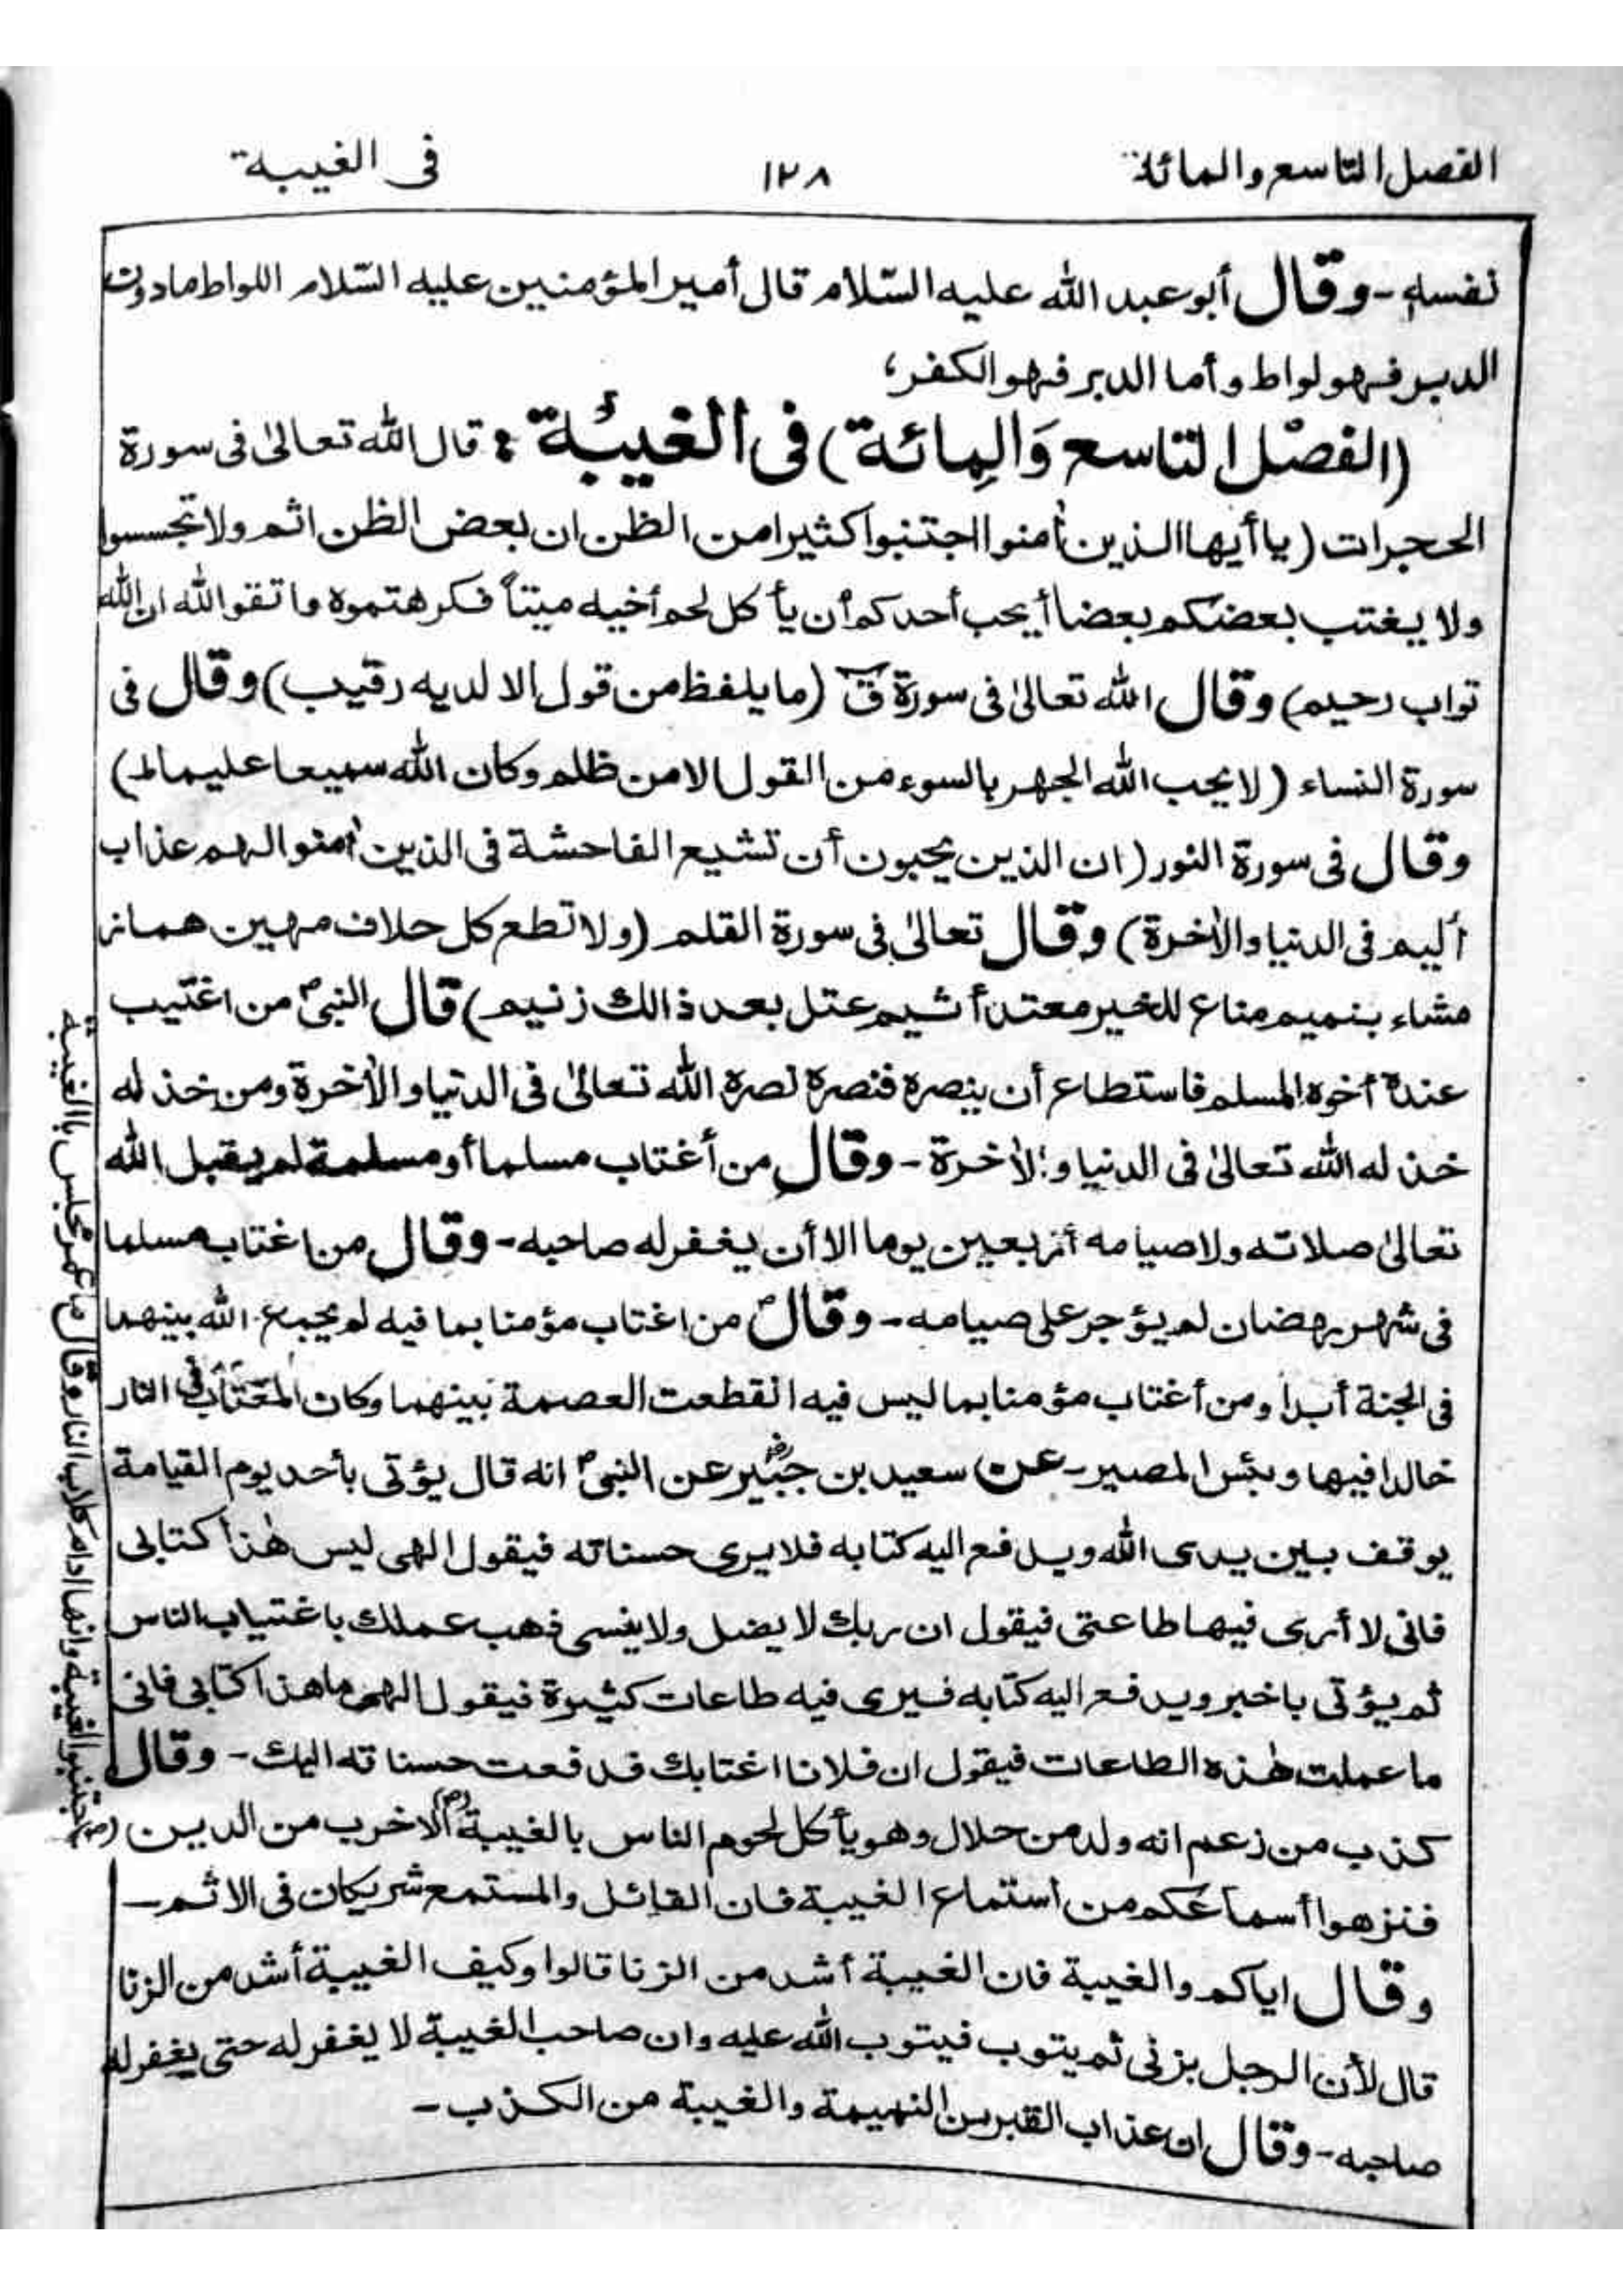 الفصل التاسع والمائة
١٢٨
فى الغيبة
نفسه - وقال أبو عبد الله عليه السّلام قال أمير المؤمنين عليه السّلام اللواط مادون
الدبر فهو لواط وأما الدبر فهو الكفر؛
(الفصل التاسع وَالِمائة) فى الغيبُة : قال الله تعالىٰ فى سورة
الحجرات (يا أيها الذين أٰمنوا اجتنبوا كثيرا من الظن ان بعض الظن اثم ولا تجسسوا
ولا يغتب بعضكم بعضا أيحب أحدكم أن يأكل لحم أخيه ميتاً فكرهتموه واتقوا الله ان الله
تواب رحيم) وقال الله تعالىٰ فى سورة قٓ (ما يلفظ من قول الا لديه رقيب) وقال فى
سورة النساء (لا يحب الله الجهر بالسوء من القول الا من ظلم وكان الله سميعا عليما الم)
وقال فى سورة النور (ان الذين يحبون أن تشيع الفاحشة فى الذين أٰمنوا لهم عذاب
أليم فى الدنيا والأٰخرة) وقال تعالىٰ فى سورة القلم (ولا تطع كل حلاف مهين هماز
مشاء بنميم مناع للخير معتد أثيم عتل بعد ذالك زنيم) قال النبىؐ من اغتيب
عنده أخوه المسلم فاستطاع أن ينصره فنصره نصره الله تعالىٰ فى الدنيا والأٰخرة ومن خذله
خذله الله تعالىٰ فى الدنيا والأٰخرة - وقال من أغتاب مسلما أو مسلمة لم يقبل الله
تعالىٰ صلاته ولا صيامه أربعين يوما الا أن يغفر له صاحبه - وقال من اغتاب مسلما
فى شهر رمضان لم يؤجر على صيامه - وقالؐ من اغتاب مؤمنا بما فيه لم يجمع الله بينهما
فى الجنة أبدا ومن أغتاب مؤمنا بما ليس فيه انقطعت العصمة بينهما وكان المغتاب فى النار
خالدا فيها وبئس المصير - عن سعيد بن جبير عن النبىؐ انه قال يؤتى بأحد يوم القيامة
يوقف بين يدى الله ويدفع اليه كتابه فلا يرى حسناته فيقول الهى ليس هٰذا كتابى
فانى لا أرى فيها طاعتى فيقول ان ربك لا يضل ولا ينسى ذهب عملك باغتياب الناس
ثم يؤتى باخبر ويدفع اليه كتابه فيرى فيه طاعات كثيرة فيقول الهى ما هذا كتابى فانى
ما عملت هٰذه الطاعات فيقول ان فلانا اغتابك فدفعت حسناته اليك - وقال
كذب من زعم انه ولد من حلال وهو يأكل لحوم الناس بالغيبة (ص) ألا خرب من الدين (ص)
فنزهوا أسماعكم من استماع الغيبة فان القائل والمستمع شريكان فى الاثم -
وقال اياكم والغيبة فان الغيبة أشد من الزنا قالوا وكيف الغيبة أشد من الزنا
قال لأن الرجل يزنى ثم يتوب فيتوب الله عليه وان صاحب الغيبة لا يغفر له حتى يغفر له
صاحبه - وقال ان عذاب القبر من النميمة والغيبة من الكذب -
اجتنبوا الغيبة وانها ادام كلاب النار وقال ما عمر مجلس باالغيبة